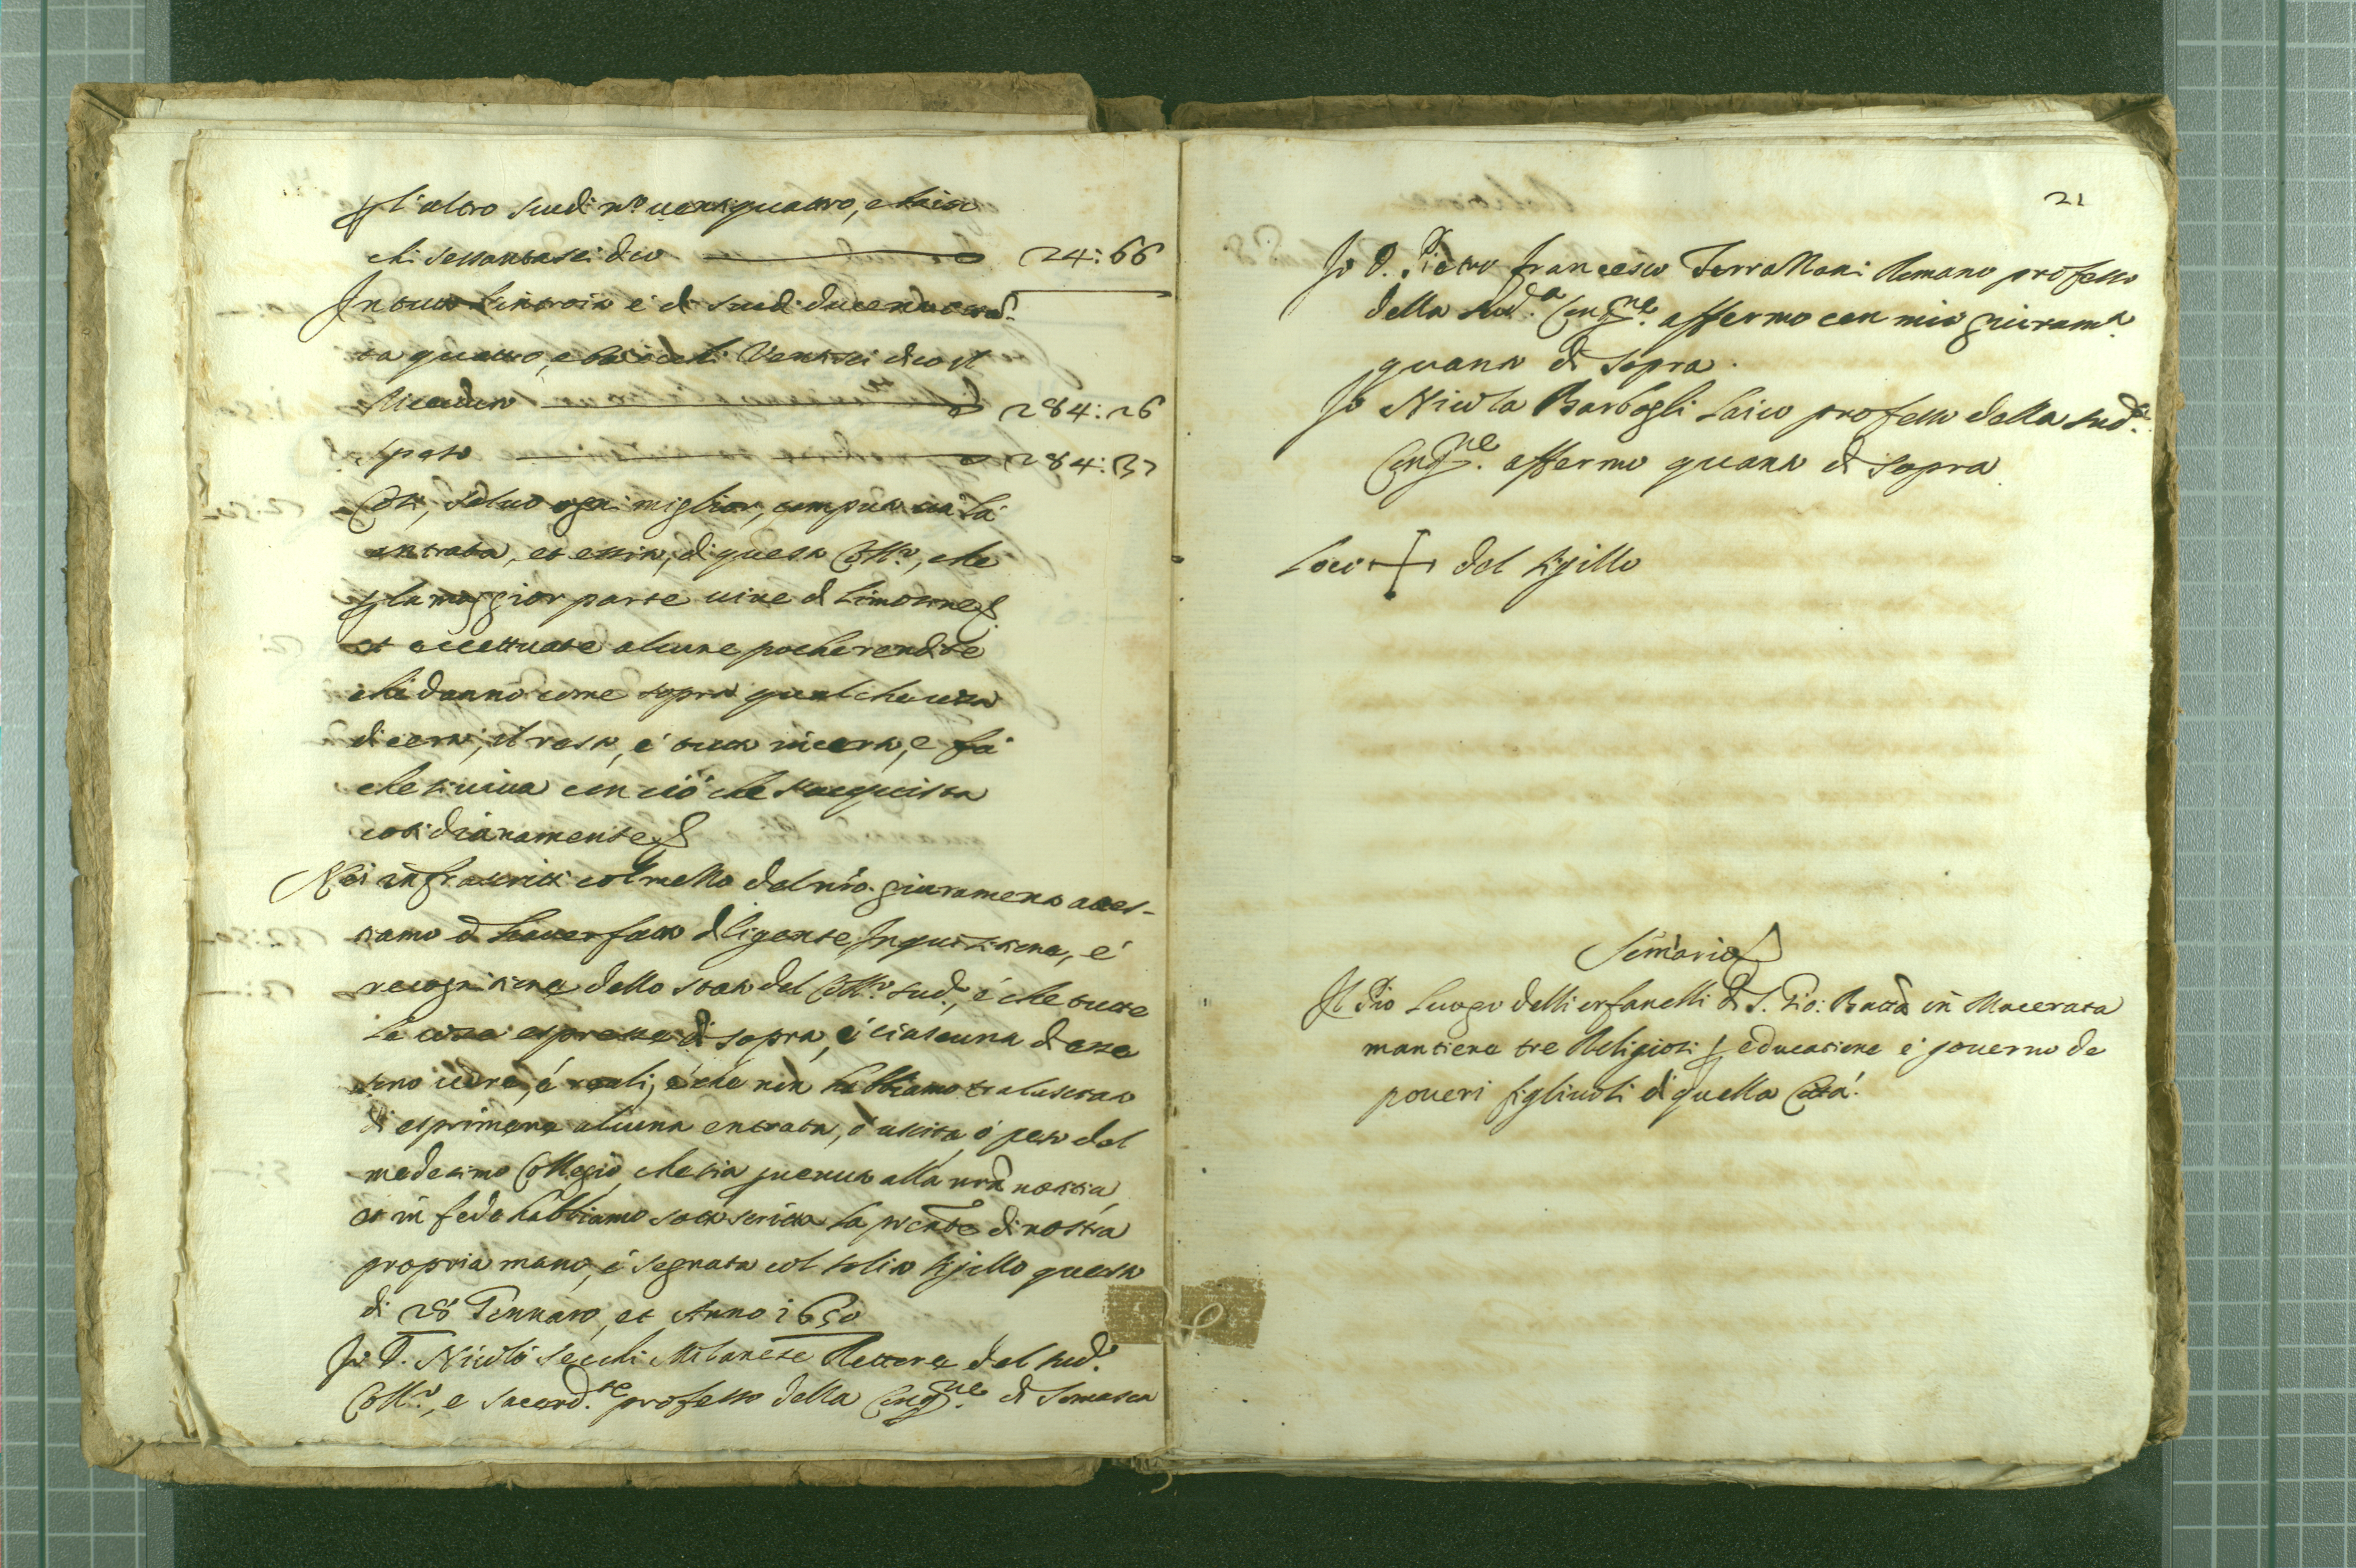 l'altro scudi nº ventiquattro, e baioc
chi sessantasei dico 24:66
In tutto l'entrata è di scudi ducento ottã
ta quattro, e baiocchi Ventisei dico
284:26
peso 284:37
Così, salvo ogni miglior, computo sia la
entrata, et esito, di questo Collº, che
la maggior parte vive di limosine
et eccettuate alcune poche rendite
che danno come sopra qualche cosa
di certo, il resto, è tutto incerto, e fa
che si viva con ciò che s'acquista
cotidianamente
Noi infrascritti col mezzo del nrõ giuramento attes-
tiamo d'haver fatto diligente Inquisitione, e
recognitione dello stato del Collº sudº, e che tutte
le cose espresse di sopra, e ciascuna d'esse
sono vere, e reali, e che non habbiamo tralasciato
di esprimere alcuna entrata, ò uscita, ò peso del
medesimo Collegio, che sia pvenuta alla nrã notitia
et in fede habbiamo sottoscritta la pñte di nostra
propria mano, e segnata col solito sigillo questo
di 28 Gennaro, et Anno 1650
Io D. Nicolò Secchi Milanese Rettore del sudº
Collº, e sacerd.te professo della Cong.ne di Somasca
21
Io D. Pietro Francesco Romano professo
della sud.a Cong.ne affermo con mio giuram.º
quanto di sopra.
Io Nicola Barbogli laico professo della sud.a
Cong.ne affermo quanto di sopra
Loco + del sigillo
Il Pio Luogo delli orfanelli di S. Gio: Battã in Macerata
mantiene tre Religiosi educatione e governo de
poveri figliuoli di quella Città.